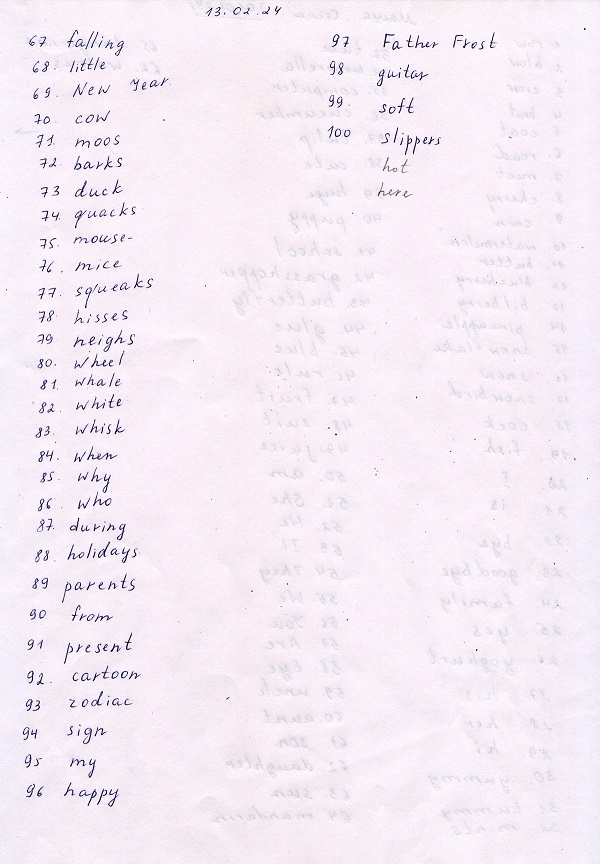 13.02.24
67 falling
68. little
69. New Year
70 cow
71. moos
72 barks
73 duck
74. quacks
75. mouse-
76. mice
77. squeaks
78 hisses
79 neighs
80. wheel
81. whale
82. white
83. whisk
84. when
85. why
86 who
87. during
88. holidays
89 parents
90 from
91 present
92. cartoon
93 zodiac
94 sign
95 my
96 happy
97 Father Frost
98 guitar
99. soft
100 slippers
hot
here